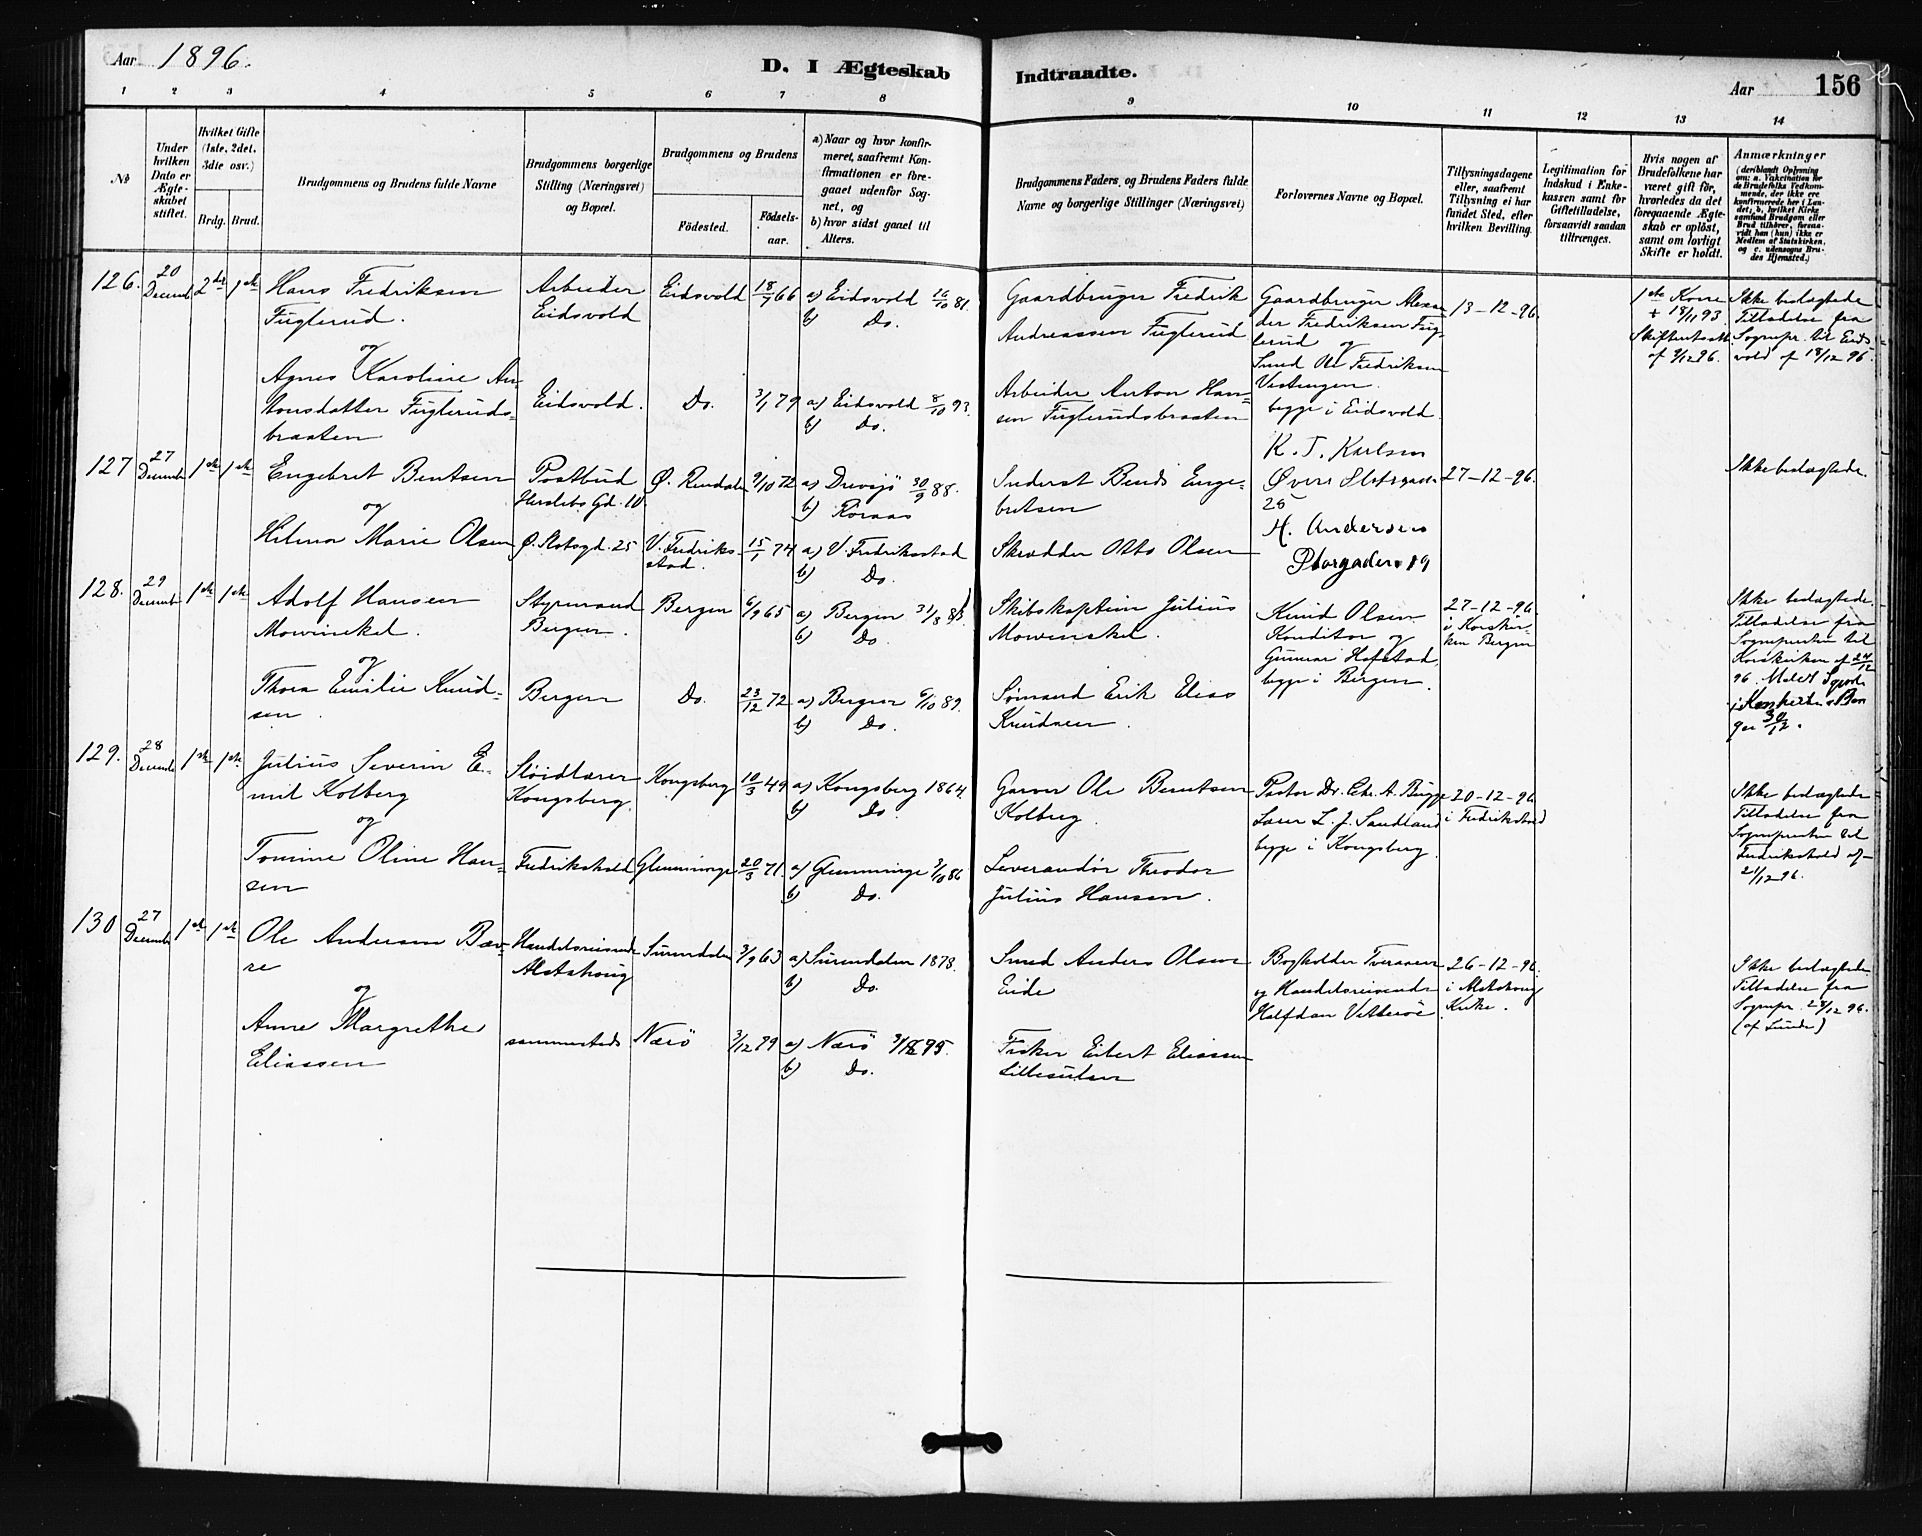 Aar 1896.
D. I Ægteskab Indtraadte.
Aar 156
1 2 3 4 5 6 7 8 9 10 11 12 13 14
No
Under hvilken Dato er Ægteskabet stiftet.
Hvilket Gifte (1ste, 2det, 3die osv.)
Brdg. Brud.
Brudgommens og Brudens fulde Navne
Brudgommens borgerlige Stilling (Næringsvei) og Bopæl.
Brudgommens og Brudens
Fødested.
Fødsels-aar.
a) Naar og hvor konfir-
meret, saafremt Kon-
firmationen er fore-
gaaet udenfor Sog-
net, og
b) hvor sidst gaaet til
Alters.
Brudgommens Faders, og Brudens Faders fulde
Navne og borgerlige Stillinger (Næringsvei)
Forlovernes Navne og Bopæl.
Tillysningsdagene
eller, saafremt
Tillysning ei har
fundet Sted, efter
hvilken Bevilling.
Legitimation for
Indskud i Enke-
kassen samt for
Giftetilladelse,
forsaavidt saadan
tiltrænges.
Hvis nogen af
Brudefolkene har
været gift før,
hvorledes da det
foregaaende Ægte-
skab er opløst,
samt om lovligt
Skifte er holdt.
Anmærkninger
(deriblandt Oplysning
om: a. Vakcination for
de Brudefolks Vedkom-
mende, der ikke ere
konfirmerede her i Lan-
det; b. hvilket Kirke
samfund Brudgom eller
Brud tilhører, forsaa-
vidt han (hun) ikke er
Medlem af Statskirken,
og c. udensogns Bru-
des Hjemsted.)
126. 20 Decemb 2det 1ste
Hans Fredriksen
Fuglerud.
og
Agnes Karoline An-
tonsdatter Fugleruds-
braaten
Arbeider
Eidsvold
Eidsvold.
Eidsvold 18/7 66 a) Eidsvold 16/10 81.
b) Do.
Do. 3/1 79 a) Eidsvold 8/10 93.
b) Do.
Gaardbruger Fredrik
Andreassen Fuglerud
Arbeider Anton Han-
sen Fuglerudsbraaten
Gaardbruger Alexan
der Fredriksen Fug-
lerud og
Smed Ole Fredriksen
Vestengen.
begge i Eidsvold.
13-12-96.
1ste Kone
+ 18/11 93
Skifteattest
af 9/12 96.
Ikke beslægtede
Tilladelse fra
Sognepr. til Eids
vold af 18/12 96.
127 27 Decemb 1ste 1ste
Engebret Bentsen
og
Hilma Marie Olsen
Postbud
Herslebs Gd. 10.
Ø. Slotsgd. 25
Ø. Rendalen 9/10 72 a) Drevsjø 30/9 88.
b) Røraas
V. Fredriks
stad. 15/1 74 a) V. Fredriksstad
b) Do.
Inderst Bend Enge-
bretsen
Skrædder Otto Olsen
K. T. Karlsen
Øvre Slotsgade
25
H. Andersen
Storgaden 19
27-12-96.
Ikke beslægtede.
128. 29 Decemb 1ste 1ste
Adolf Hansen
Mowinckel.
og
Thora Emilie Knud-
sen.
Styrmand
Bergen.
Bergen
Bergen 6/9 65 a) Bergen 31/8
b) Do.
Do. 23/12 72 a) Bergen 6/10 89.
b) Do.
Skibskaptein Julius
Mowinckel.
Sømand Erik Elias
Knudsen.
Knud Olsen
Konditor og
Gunnar Hofstad
begge i Bergen.
27-12-96.
i Korskir-
ken Bergen
Ikke beslægtede.
Tilladelse fra
Sognepresten til
Korskirken af 24/12
96.
129. 28 Decemb 1ste 1ste
Julius Severin E-
mil Kolberg
og
Tomine Oline Han-
sen
Sløidlærer
Kongsberg.
Fredrikshald
Kongsberg 10/3 49 a) Kongsberg 1864.
b) Do.
Glemminge 20/3 71 a) Glemminge 3/10 86
b) Do.
Garver Ole Berntsen
Kolberg.
Leverandør Theodor
Julius Hansen.
Pastor Dr. Chr. A. Bugge
Lærer L. J. Sandland
begge i Kongsberg.
20-12-96.
Ikke beslægtede
Tilladelse fra
Sognepresten til
Fredrikshald af
21/12 96.
130 27 Decemb 1ste 1ste
Ole Andersen Bæv-
re
og
Anne Margrethe
Eliassen
Handelsreisende
Alstahoug
sammesteds
Surendalen 3/9 63 a) Surendalen 1878.
b) Do.
Nærø 3/12 79 a) Nærø 95.
b) Do.
Smed Anders Olsen
Eide
Fisker Eibert Eliassen
Bogholder Tveraaen
og Handelsreisende
Halfdan Vetterøe
26-12-96.
i Alstahoug
Kirke.
Ikke beslægtede
Tilladelse fra
Sognepr. 28/12 96.